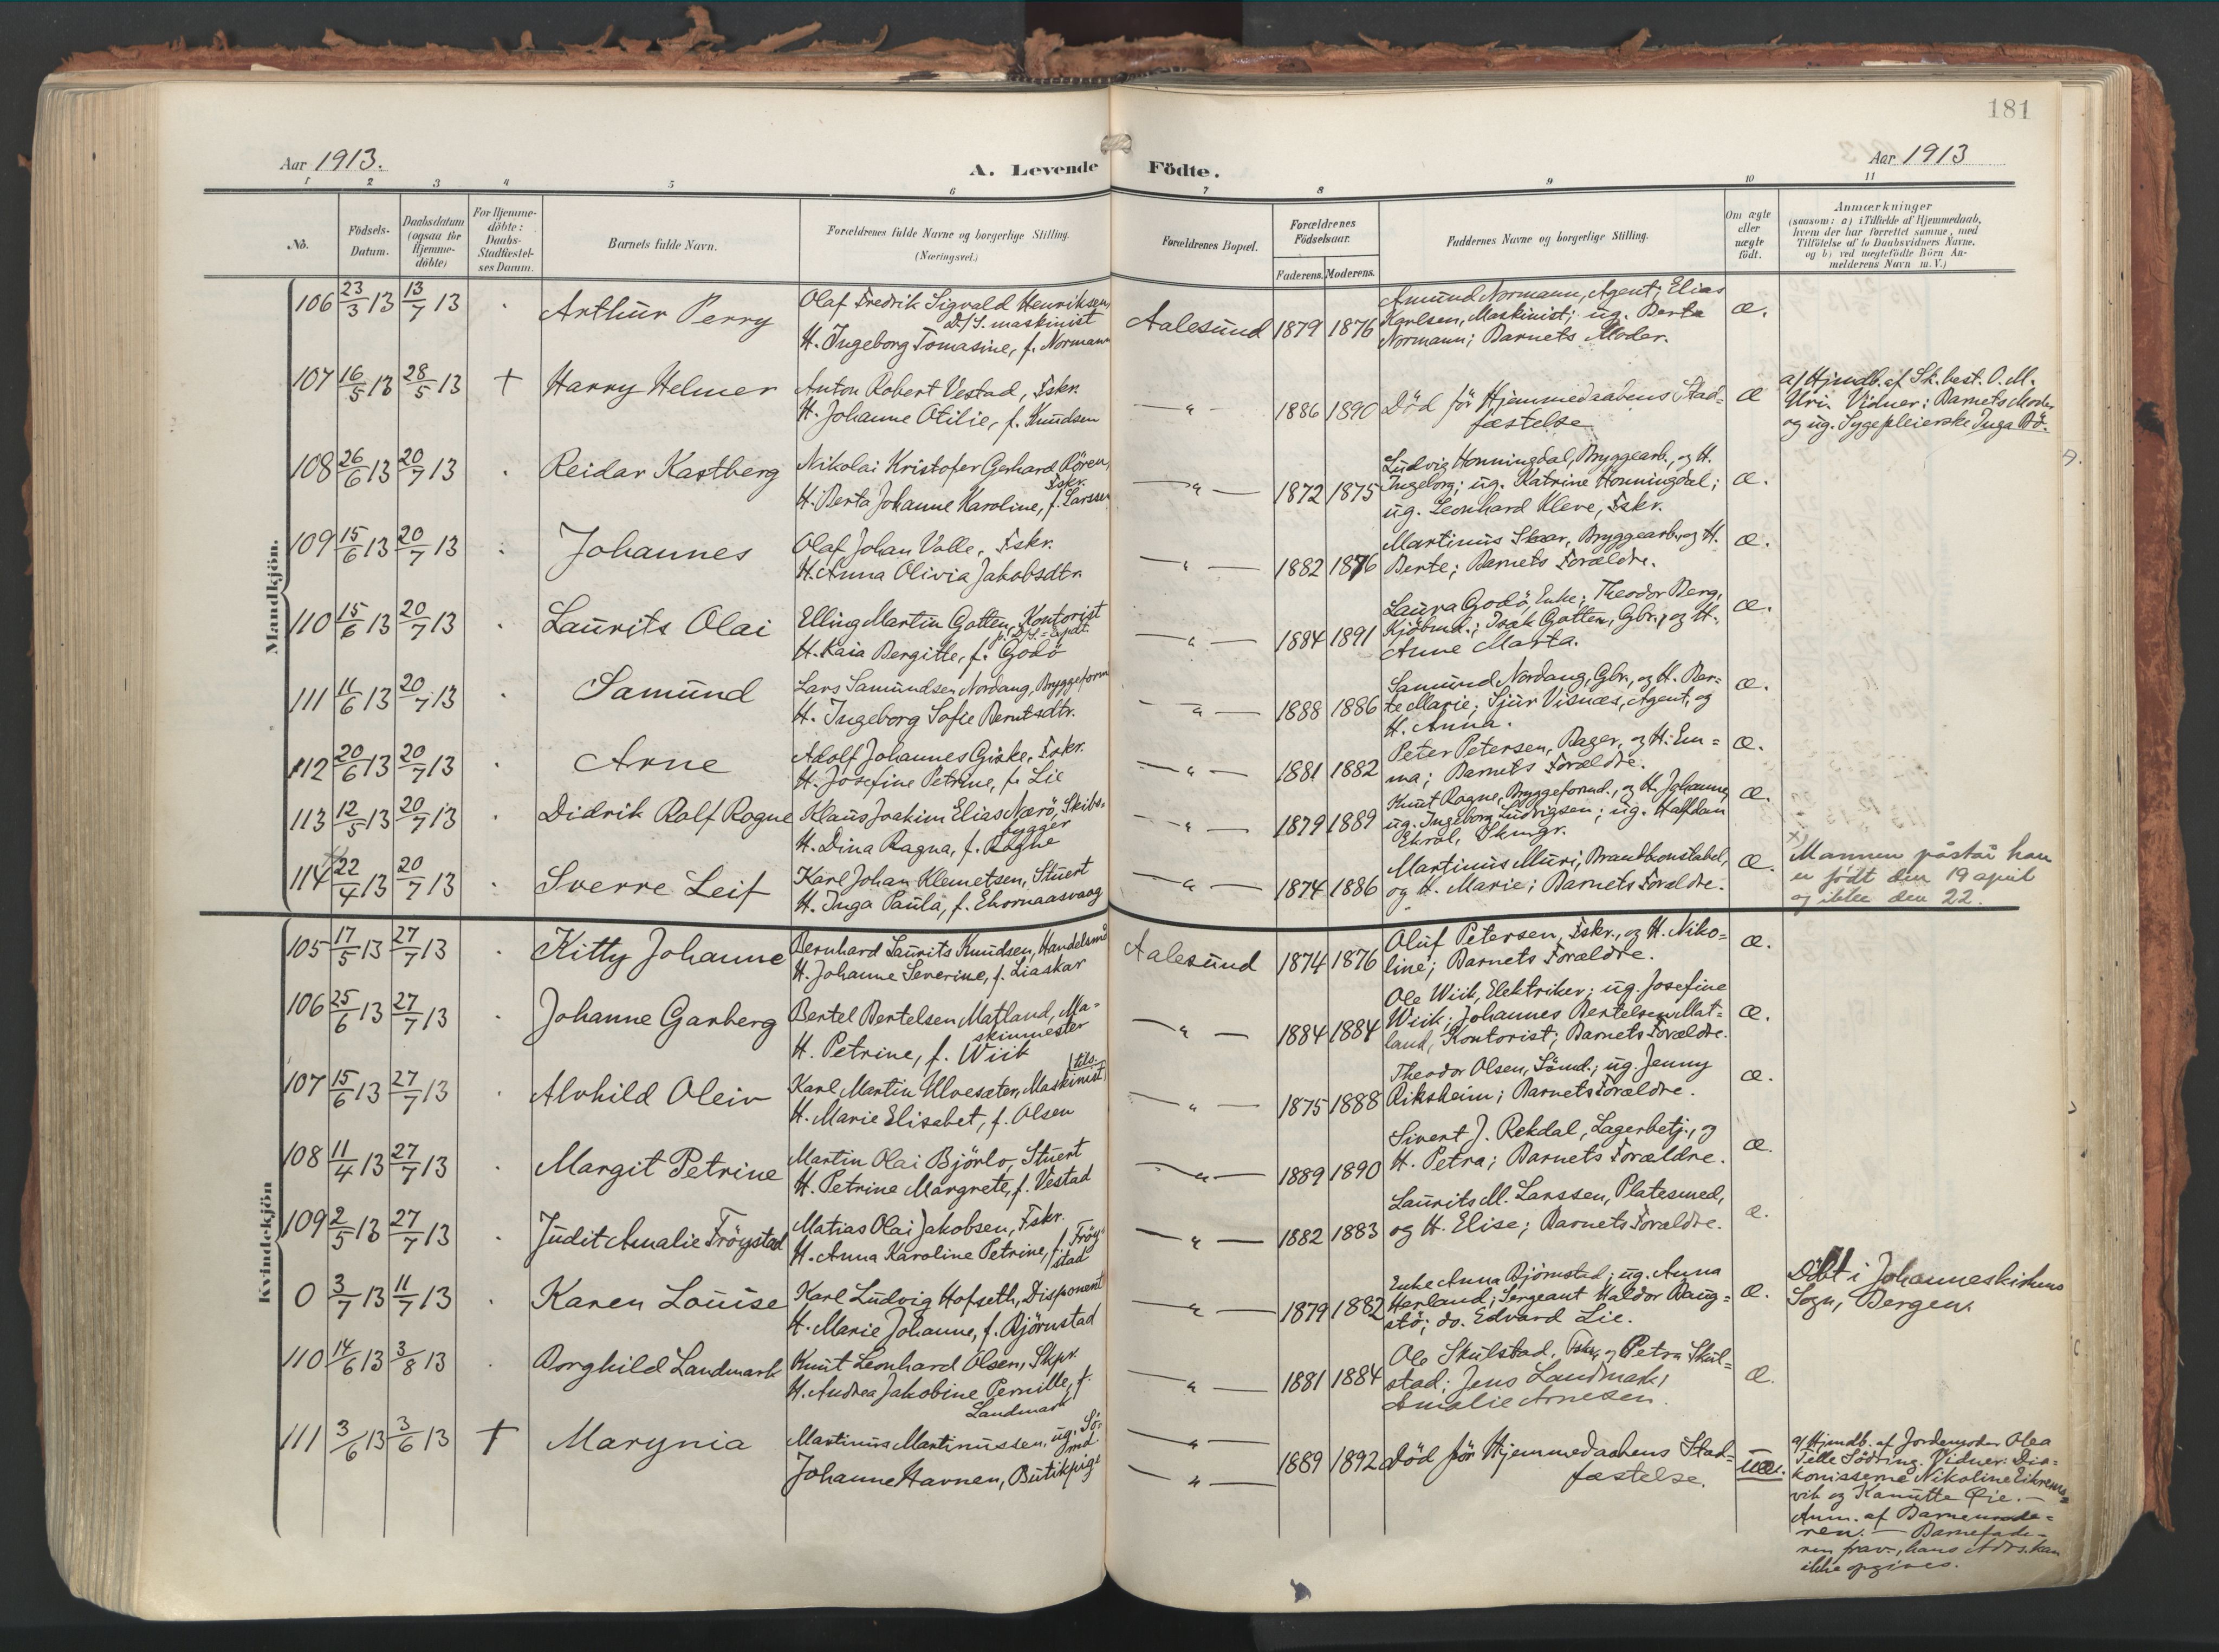 181
Aar 1913.
A. Levende Födte.
Aar 1913
1 2 3 4 5 6 7 8 9 10 11
No.
Födsels-
Datum.
Daabsdatum
(ogsaa for
Hjemme-
döbte)
For Hjemme-
döbte:
Daabs-
Stadfæstel-
ses Datum.
Barnets fulde Navn.
Forældrenes fulde Navne og borgerlige Stilling.
(Næringsvei.)
Forældrenes Bopæl.
Forældrenes
Födselsaar.
Faderens. Moderens.
Faddernes Navne og borgerlige Stilling.
Om ægte
eller
uægte
født.
Anmærkninger
(saasom: a) i Tilfælde af Hjemmedaab,
hvem der har forrettet samme, med
Tilföielse af to Daabsvidners Navne,
og b) ved uægtefödte Börn An-
melderens Navn m. V.)
Mandkjön.
106 23/3 13 13/7 13 Arthur Perry
Olaf Fredrik Sigvald Henriksen,
D/S. maskinist
H. Ingeborg Tomasine, f. Normann
Aalesund 1879 1876
Amund Normann, Agent; Elias
Karlsen, Maskinist; ug. Berta
Normann; Barnets Moder.
æ.
107 16/5 13 28/5 13 + Harry Helmer
Anton Robert Vestad, Fskr.
H. Johanne Otilie, f. Knudsen
— " — 1886 1890
Död för Hjemmedaabens Stad=
fæstelse
æ
a/ Hjmdb. af Sk.best. O. M.
Uri. Vidner: Barnets Moder
og ug. Sygepleierske Inga Bö.
108 26/6 13 20/7 13 Reidar Kastberg
Nikolai Kristofer Gerhard Rören,
Fskr.
H. Berta Johanne Karoline, f. Larssen
— " — 1872 1875
Ludvig Honningdal, Bryggearb., og H.
Ingeborg; ug. Katrine Honningdal;
ug. Leonhard Kleve, Fskr.
æ.
109 15/6 13 20/7 13 Johannes
Olaf Johan Valle, Fskr.
H. Anna Olivia Jakobsdtr.
— " — 1882 1876
Martinus Skaar, Bryggearb., og H.
Berte; Barnets Forældre.
æ.
110 15/6 13 20/7 13 Laurits Olai
Elling Martin Gatten, Kontorist
H. Kaia Bergitte, f. Godö
— " — 1884 1891
Laura Godö, Enke; Theodor Berg,
Kjöbmd.; Isak Gatten, Gbr., og H.
Anne Marta.
æ.
111 11/6 13 20/7 13 Samund
Lars Samundsen Nordang, Bryggeform
H. Ingeborg Sofie Berntsdtr.
— " — 1888 1886
Samund Nordang, Gbr., og H. Ber=
te Marie; Sjur Visnæs, Agent, og
H. Anna.
æ.
112 20/6 13 20/7 13 Arne
Adolf Johannes Giske, Fskr.
H. Josefine Petrine, f. Lie
— " — 1881 1882
Peter Petersen, Bager, og H. Em=
ma; Barnets Forældre.
æ.
113 12/5 13 20/7 13 Didrik Rolf Rogne
Klaus Joakim Elias Nærö, Skibs-
bygger
H. Dina Ragna, f. Rogne
— " — 1879 1889
Knut Rogne, Bryggeformd., og H. Johanne;
ug. Ingeborg Ludvigsen; ug. Halfdan
æ.
114 22/4 13 20/7 13 Sverre Leif
Karl Johan Klemetsen, Stuert
H. Inga Paula, f. Ekornaasvaag
— " — 1874 1886
Martinus Muri, Brandkonstabel,
og H. Marie; Barnets Forældre.
æ.
x) Mannen påstår han
er født den 19 april
og ikke den 22.
Kvindekjön
105 17/5 13 27/7 13 Kitty Johanne
Bernhard Laurits Knudsen, Handelsmd
H. Johanne Severine, f. Liaskar
Aalesund 1874 1876
Oluf Petersen, Fskr., og H. Niko=
line; Barnets Forældre.
æ.
106 25/6 13 27/7 13 Johanne Garberg
Bertel Bertelsen Matland, Ma=
skinmester
H. Petrine, f. Wiik
— " — 1884 1884
Ole Wiik, Elektriker; ug. Josefine
Wiik; Johannes Bertelsen Mat=
land, Kontorist; Barnets Forældre.
æ.
107 15/6 13 27/7 13 Alvhild Oleiv
Karl Martin Ulvesæter, Maskinist
H. Marie Elisabet, f. Olsen
— " — 1875 1888
Theodor Olsen, Sömd.; ug. Jenny
Riksheim; Barnets Forældre.
æ.
108 11/4 13 27/7 13 Margit Petrine
Martin Olai Björlo, Stuert
H. Petrine Margrete, f. Vestad
— " — 1889 1890
Sivert J. Rekdal, Lagerbetj., og
H. Petra; Barnets Forældre.
æ.
109 2/5 13 27/7 13 Judit Amalie Fröystad
Matias Olai Jakobsen, Fskr.
H. Anna Karoline Petrine, f. Fröy
stad
— " — 1882 1883
Laurits M. Larssen, Platesmed,
og H. Elise; Barnets Forældre.
æ.
0 3/7 13 11/7 13 Karen Louise
Karl Ludvig Hofseth, Disponent
H. Marie Johanne, f. Björnstad
— " — 1879 1882
Enke Anna Björnstad; ug. Anna
Herland; Sergeant Haldor Baug=
stö; do. Edvard Lie.
æ.
Döbt i Johanneskirkens
Sogn, Bergen.
110 14/6 13 3/8 13 Borghild Landmark
Knut Leonhard Olsen, Skpr.
H. Andrea Jakobine Pernille, f.
Landmark
— " — 1881 1884
Ole Skulstad, Fskr., og Petra Skul=
stad; Jens Landmark;
Amalie Arnesen.
æ.
111 3/6 13 3/6 13 + Marynia
Martinus Martinussen, ug. Sö=
md.
Johanne Havnen, Butikpige
— " —
— " — 1889 1892
Död för Hjemmedaabens Stad=
fæstelse.
uæ.
a/ Hjmdb. af Jordemoder Olea
Telle Södring. Vidner: Dia=
konisserne Nikoline Eikrems=
vik og Kanutte Øie. —
Anm. af Barnemode=
ren. — Barnefade=
ren frav., hans Adrs. kan
ikke opgives.